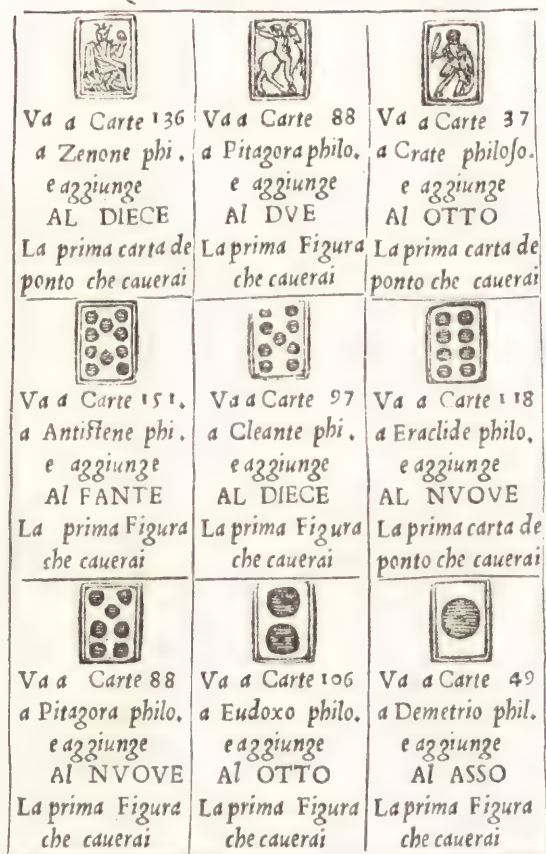 Va a Carte 136
a Zenone phi.
e aggiunge
AL DIECE
La prima carta de
ponto che cauerai
Va a Carte 88
a Pitagora philo.
e aggiunge
Al DVE
La prima Figura
che cauerai
Va a Carte 37
a Crate philoso.
e aggiunge
Al OTTO
La prima carta de
ponto che cauerai
Va a Carte 151.
a Antistene phi.
e aggiunge
Al FANTE
La prima Figura
che cauerai
Va a Carte 97
a Cleante phi.
e aggiunge
AL DIECE
La prima Figura
che cauerai
Va a Carte 118
a Eraclide philo.
e aggiunge
AL NVOVE
La prima carta de
ponto che cauerai
Va a Carte 88
a Pitagora philo.
e aggiunge
Al NVOVE
La prima Figura
che cauerai
Va a Carte 106
a Eudoxo philo.
e aggiunge
Al OTTO
La prima Figura
che cauerai
Va a Carte 49
a Demetrio phil.
e aggiunge
Al ASSO
La prima Figura
che cauerai